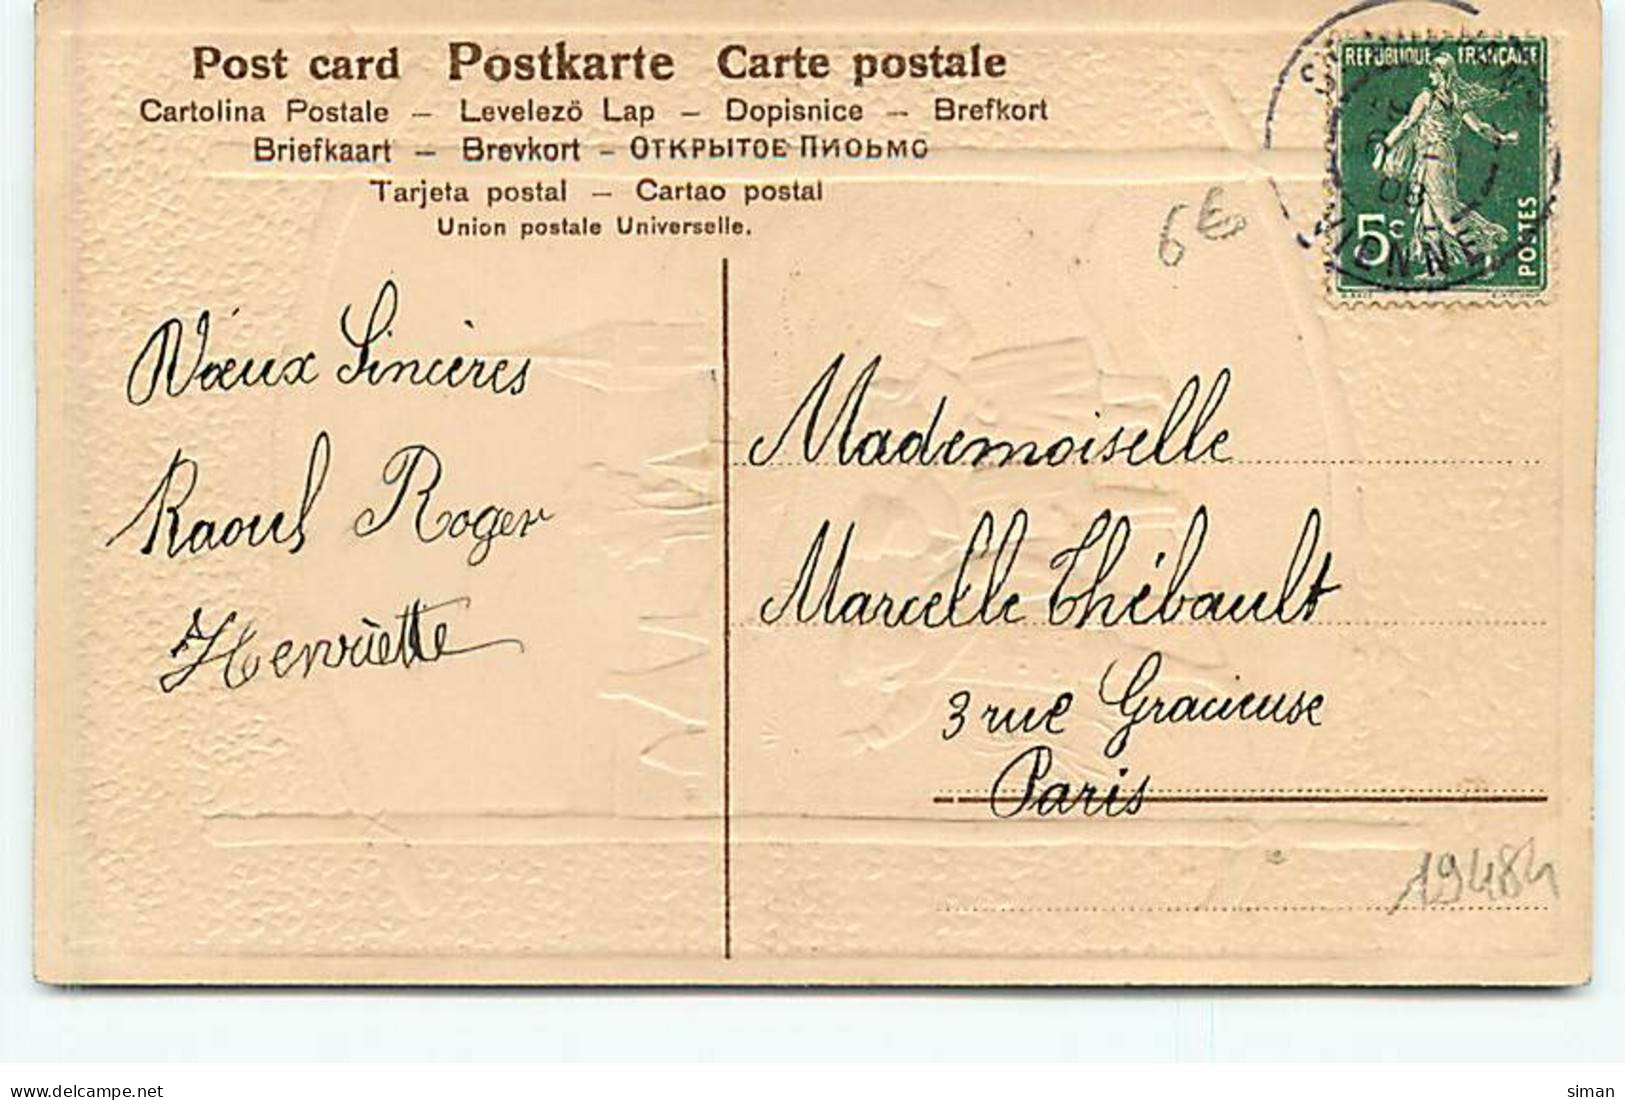 Post card Postkarte Carte postale
Cartolina Postale – Levelezö Lap – Dopisnice – Brefkort
Briefkaart – Brevkort – Открытое Письмо
Tarjeta postal – Cartao postal
Union postale Universelle.
6€
REPUBLIQUE FRANÇAISE
5c
POSTES
08
VIENNE
Vœux Sincères
Raoul Roger
Henriette
Mademoiselle
Marcelle Thébault
3 rue Gracieuse
Paris
19484
www.delcampe.net
siman